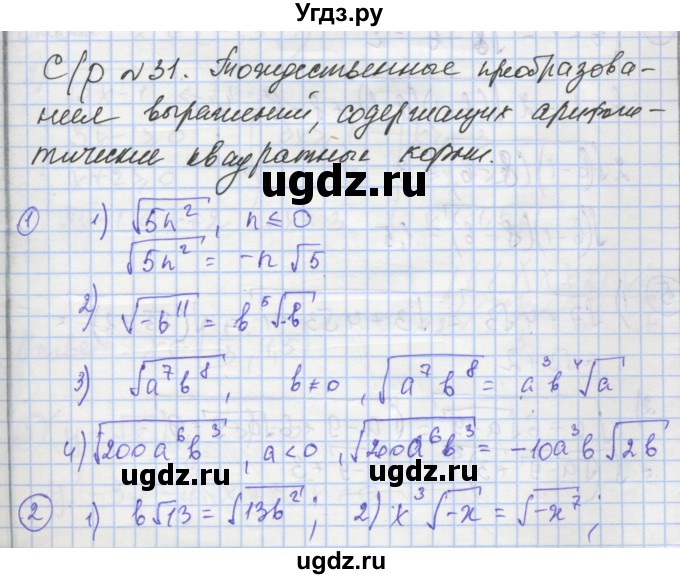 Угдз.ру
С/р №31. Тождественные преобразова-
ния выражений, содержащих арифме-
тические квадратные корни.
ugdz.ru ugdz.ru
① 1) √(5n²), n ≤ 0
√(5n²) = -n √5
2) √(-b¹¹) = b⁵√(-b)
ugdz.ru
3) √(a⁷b⁸), b ≠ 0, √(a⁷b⁸) = a³b⁴√a
4) √(200a⁶b³), a < 0, √(200a⁶b³) = -10a³b √(2b)
ugdz.ru ugdz.ru
② 1) b√13 = √(13b²); 2) x³√(-x) = √(-x⁷);
ugdz.ru